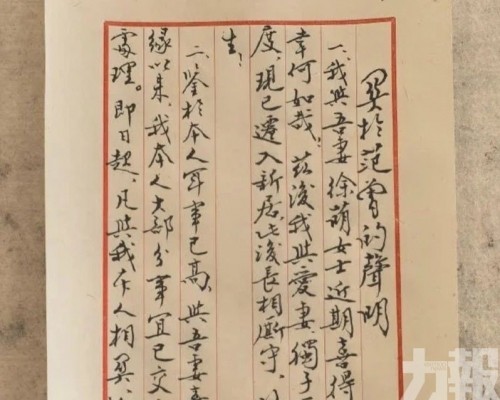 關於范曾的聲明
一、我與吾妻徐萌女士近期喜得
幸何如哉！茲後我與愛妻、獨子
度，現已遷入新居，此後長相廝守，
生！
二、鑒於本人年事已高，與吾妻喜
緣以來，我本人大部分事宜已交
處理。即日起，凡與我本人相關、
力報